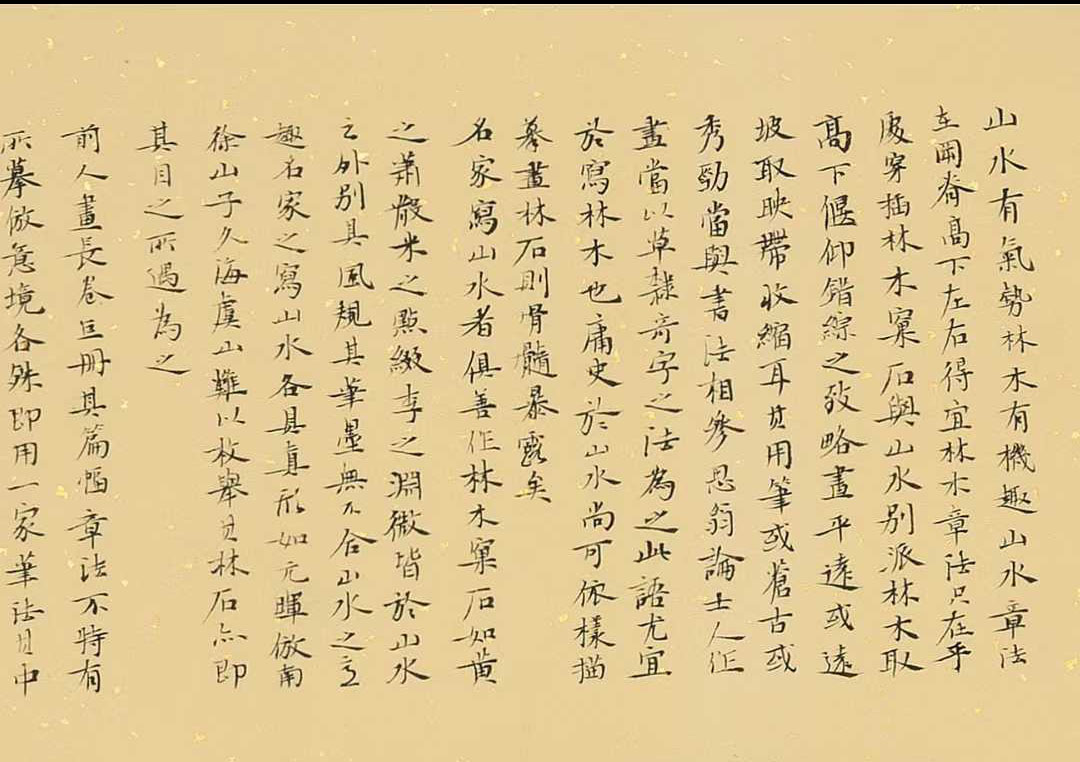 山水有氣勢林木有機趣山水章法
在岡脊高下左右得宜林木章法只在乎
處穿插林木窠石與山水別派林木取
高下偃仰錯綜之致略畫平遠或遠
坡取映帶收縮耳其用筆或蒼古或
秀勁當與書法相參思翁論士人作
畫當以草隸奇字之法為之此語尤宜
於寫林木也庸史於山水尚可依樣描
摹畫林石則骨髓暴露矣
名家寫山水者俱善作林木窠石如黃
之蕭散米之點綴李之淵微皆於山水
之外別具風規其筆墨無不合山水之
趣名家之寫山水各具真形如元暉倣南
徐山子久海虞山難以枚舉其林石亦即
其目之所遇為之
前人畫長卷巨冊其篇幅章法不特有
所摹倣意境各殊即用一家筆法其中